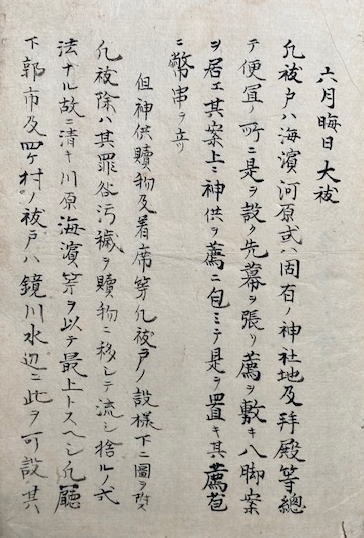 六月晦日大祓
凡祓戸ハ海濱河原或ハ固有ノ神社地及拝殿等總
テ便宜ノ所ニ是ヲ設ク先幕ヲ張リ薦ヲ敷キ八脚案
ヲ居エ其案上ニ神供ヲ薦ニ包ミテ是ヲ置キ其薦苞
ニ幣串ヲ立ツ
但神供贖物及着席等凡祓戸ノ設様下ニ圖ヲ附ス
凡祓除ハ其罪咎汚穢ヲ贖物ニ移シテ流シ捨ルノ式
法ナル故ニ清キ川原海濱等ヲ以テ最上トスヘシ凡廳
下郭市及四ケ村ノ祓戸ハ鏡川水辺ニ此ヲ可設其